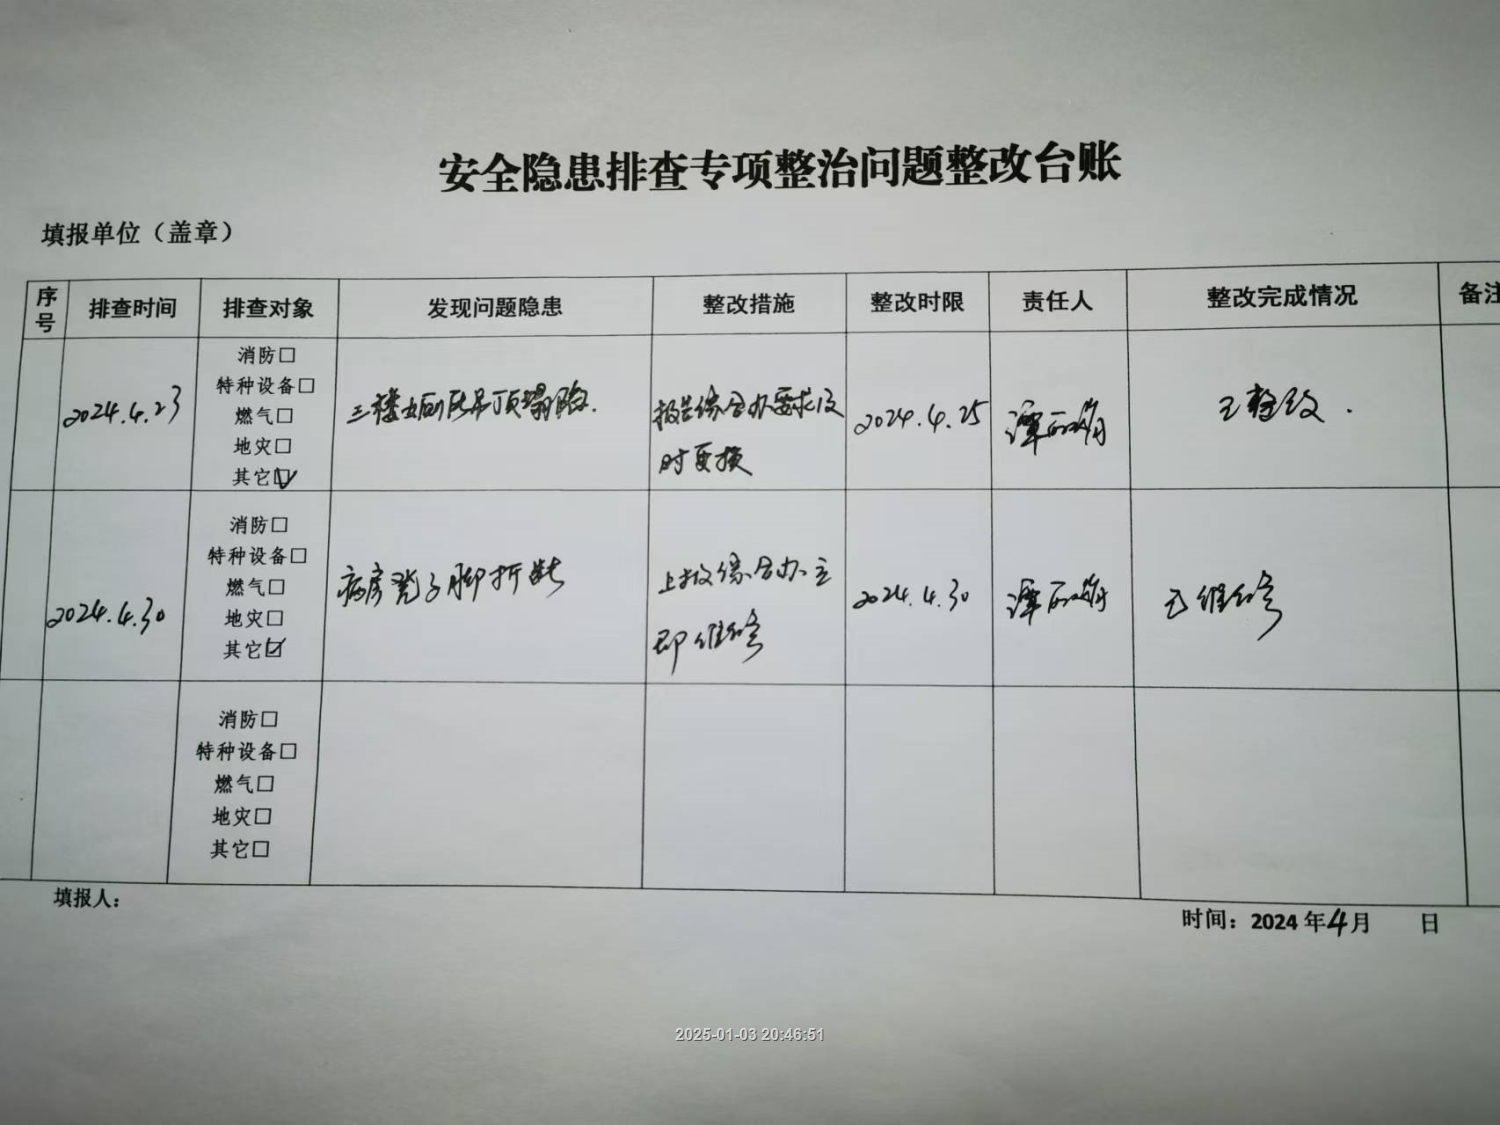 安全隐患排查专项整治问题整改台账
填报单位（盖章）
序号 排查时间 排查对象 发现问题隐患 整改措施 整改时限 责任人 整改完成情况 备注
2024.4.23
消防□
特种设备□
燃气□
地灾□
其它☑
三楼 吊顶塌陷.
报告综合办要求及
时更换
2024.4.25
谭
已整改.
2024.4.30
消防□
特种设备□
燃气□
地灾□
其它☑
病房凳子脚折断
上报综合办.立
即维修
2024.4.30
谭
已维修
消防□
特种设备□
燃气□
地灾□
其它□
填报人：
时间：2024年4月 日
2025-01-03 20:46:51